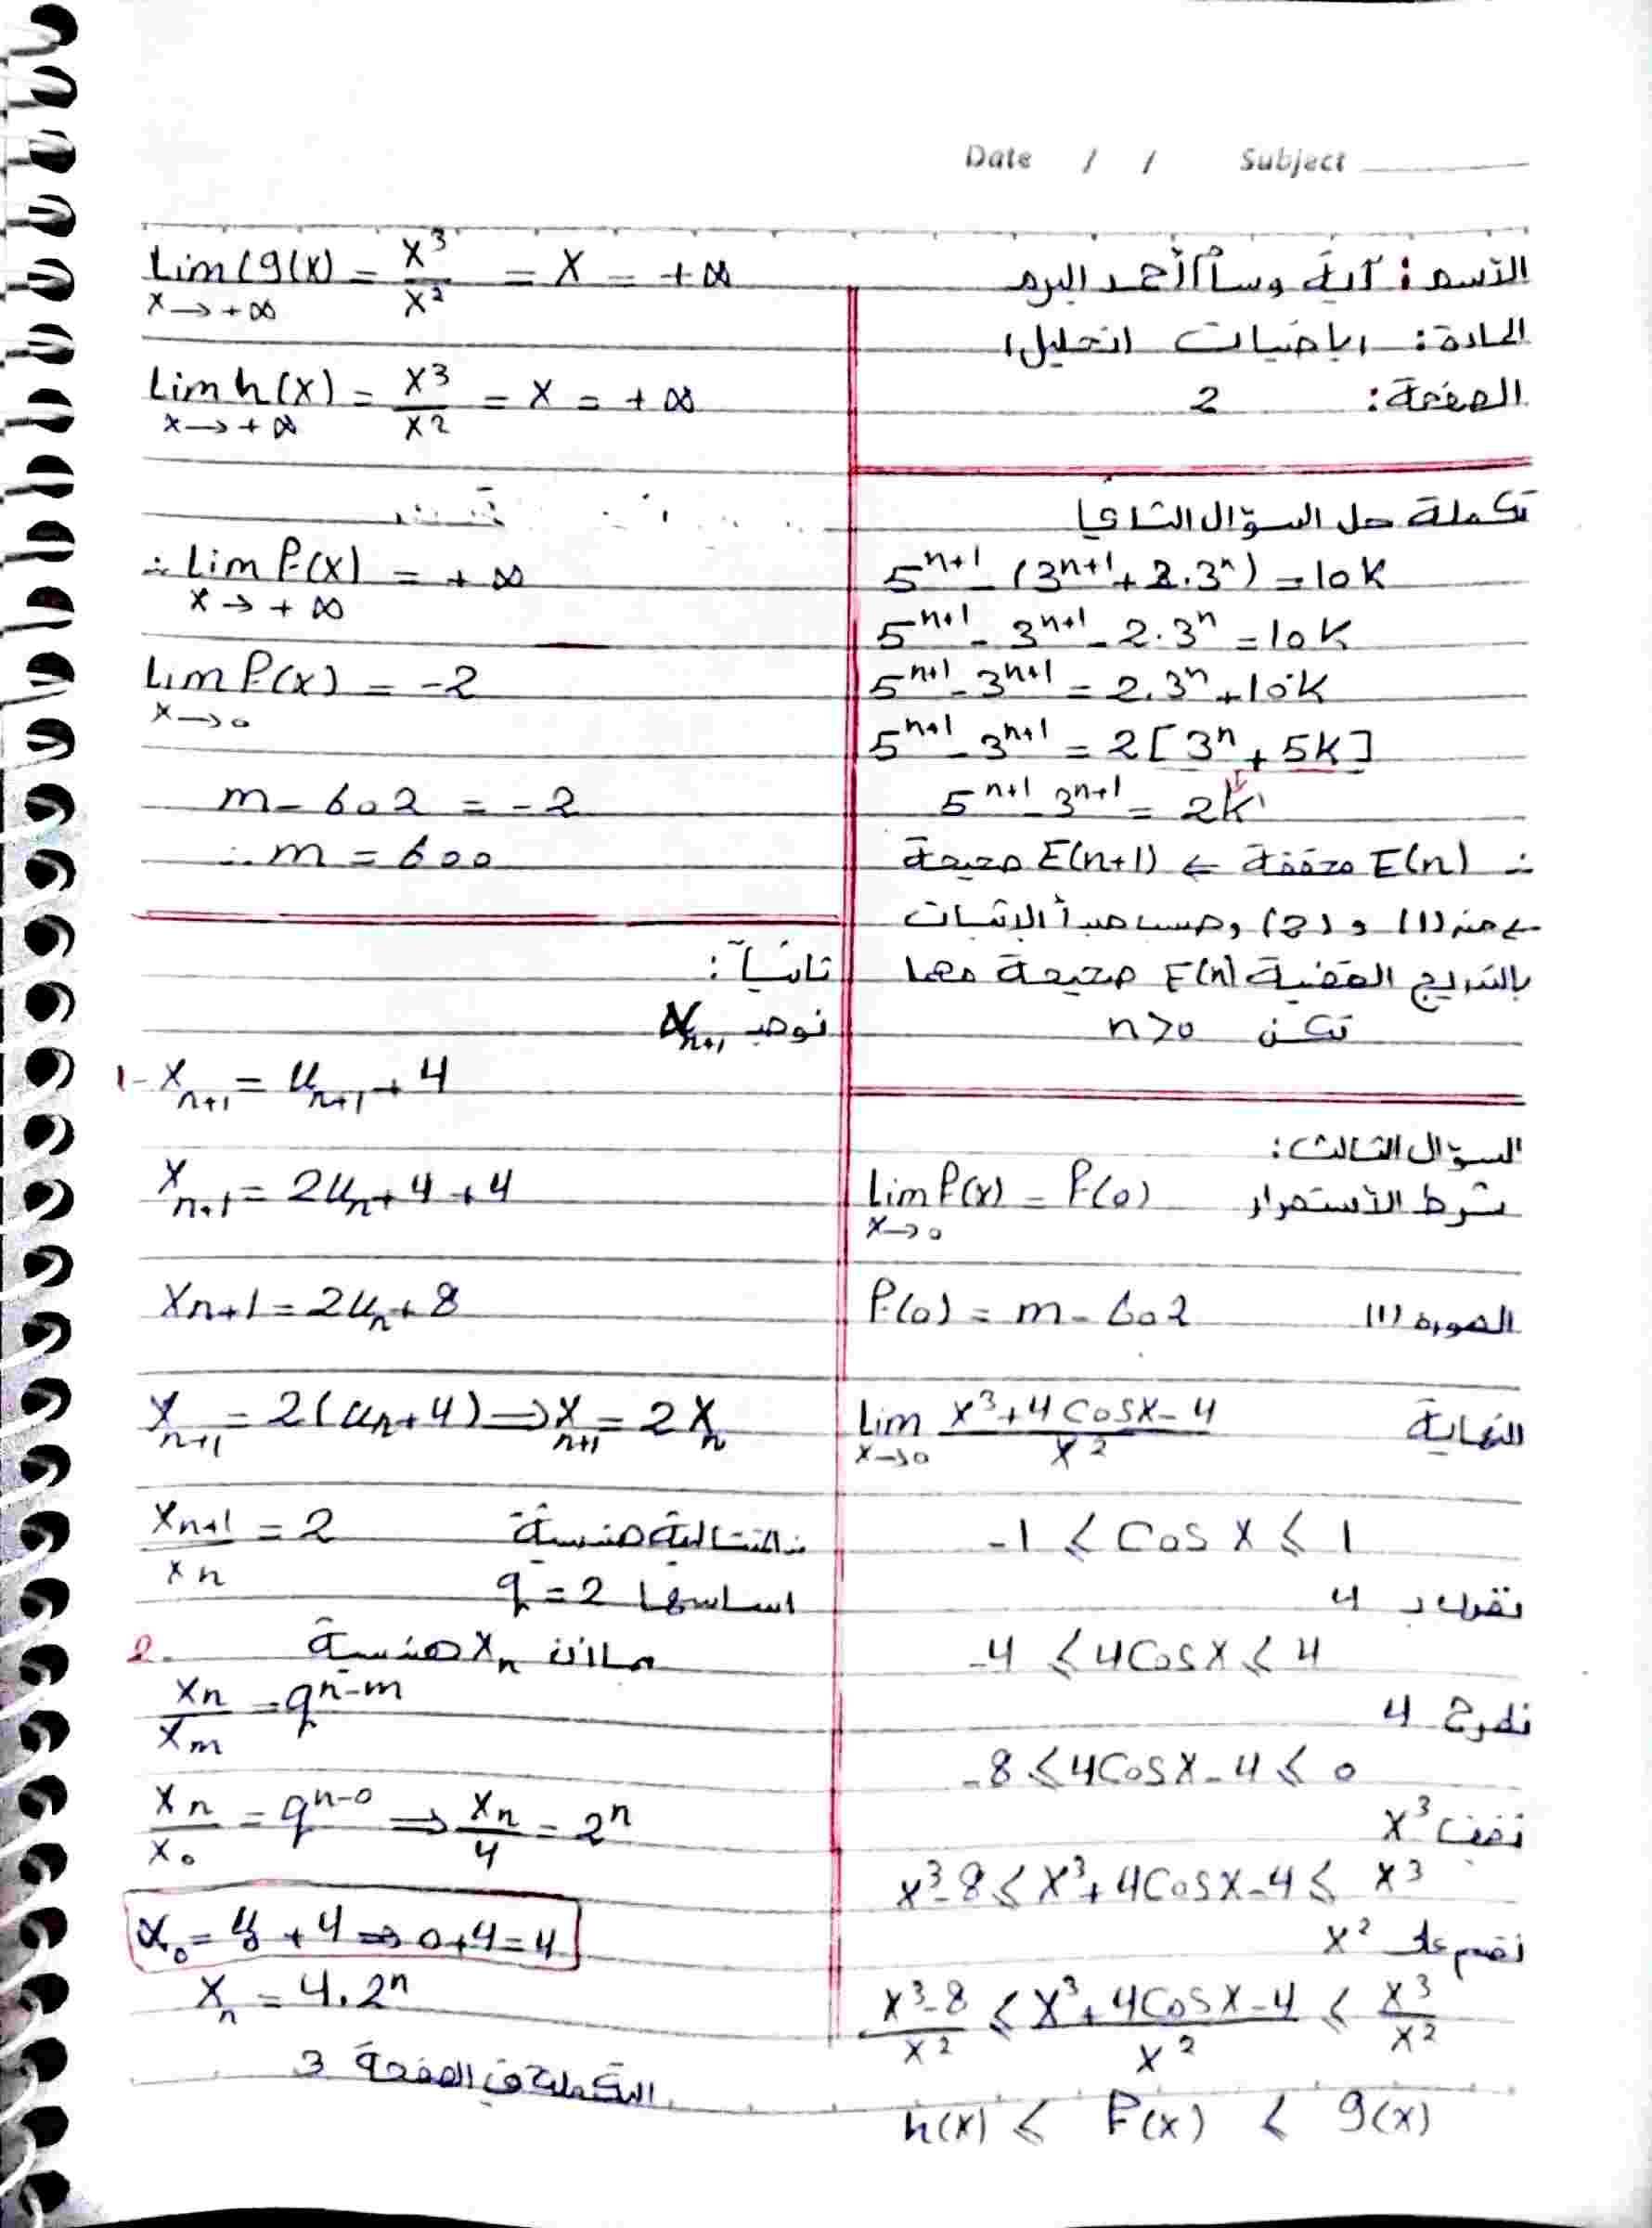 Date / / Subject
الاسم: آية وسام أحمد البرم
المادة: رياضيات (تحليل)
الصفحة: 2
تكملة حل السؤال الثاني
5^{n+1} - (3^{n+1} + 2.3^n) = 10K
5^{n+1} - 3^{n+1} - 2.3^n = 10K
5^{n+1} - 3^{n+1} = 2.3^n + 10K
5^{n+1} - 3^{n+1} = 2[3^n + 5K]
5^{n+1} - 3^{n+1} = 2K'
∴ E(n) محققة ⇐ E(n+1) صحيحة
من (1) و (2) وحسب مبدأ الإثبات
بالتدريج القضية E(n) صحيحة مهما
تكن n>0
السؤال الثالث:
شرط الاستمرار Lim_{x→0} f(x) = f(0)
الصورة (1) f(0) = m - 602
النهاية Lim_{x→0} \frac{x^3+4Cosx-4}{x^2}
-1 ≤ Cos x ≤ 1
نضرب بـ 4
-4 ≤ 4Cosx ≤ 4
نطرح 4
-8 ≤ 4Cosx - 4 ≤ 0
نضيف x^3
x^3-8 ≤ x^3+4Cosx-4 ≤ x^3
نقسم على x^2
\frac{x^3-8}{x^2} ≤ \frac{x^3+4Cosx-4}{x^2} ≤ \frac{x^3}{x^2}
h(x) ≤ f(x) ≤ g(x)
Lim_{x→+∞} (g(x) = \frac{x^3}{x^2} = x = +∞
Lim_{x→+∞} h(x) = \frac{x^3}{x^2} = x = +∞
∴ Lim_{x→+∞} f(x) = +∞
Lim_{x→0} f(x) = -2
m - 602 = -2
∴ m = 600
ثانياً:
نوجد x_{n+1}
1- x_{n+1} = u_{n+1} + 4
x_{n+1} = 2u_n + 4 + 4
x_{n+1} = 2u_n + 8
x_{n+1} = 2(u_n+4) ⇒ x_{n+1} = 2x_n
\frac{x_{n+1}}{x_n} = 2 ∴ المتتالية هندسية
اساسها q = 2
2- بما أن x_n هندسية
\frac{x_n}{x_m} = q^{n-m}
\frac{x_n}{x_0} = q^{n-0} ⇒ \frac{x_n}{4} = 2^n
x_0 = u_0 + 4 ⇒ 0+4=4
x_n = 4.2^n
التكملة في الصفحة 3